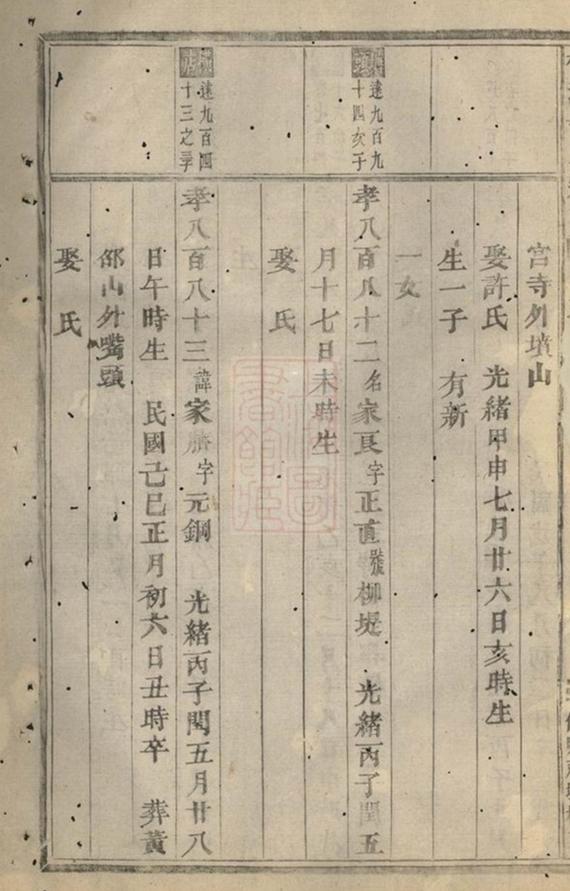 宮寺外墳山
娶許氏 光緒甲申七月廿六日亥時生
生一子 有新
一女
遠九百九
十四亥子
孝八百八十二名家良字正直號柳堤 光緒丙子閏五
月十七日未時生
娶 氏
遠九百四
十三之子
孝八百八十三諱家 字元鋼 光緒丙子閏五月廿八
日午時生 民國己巳正月初六日丑時卒 葬黃
邵山外嘴頭
娶 氏